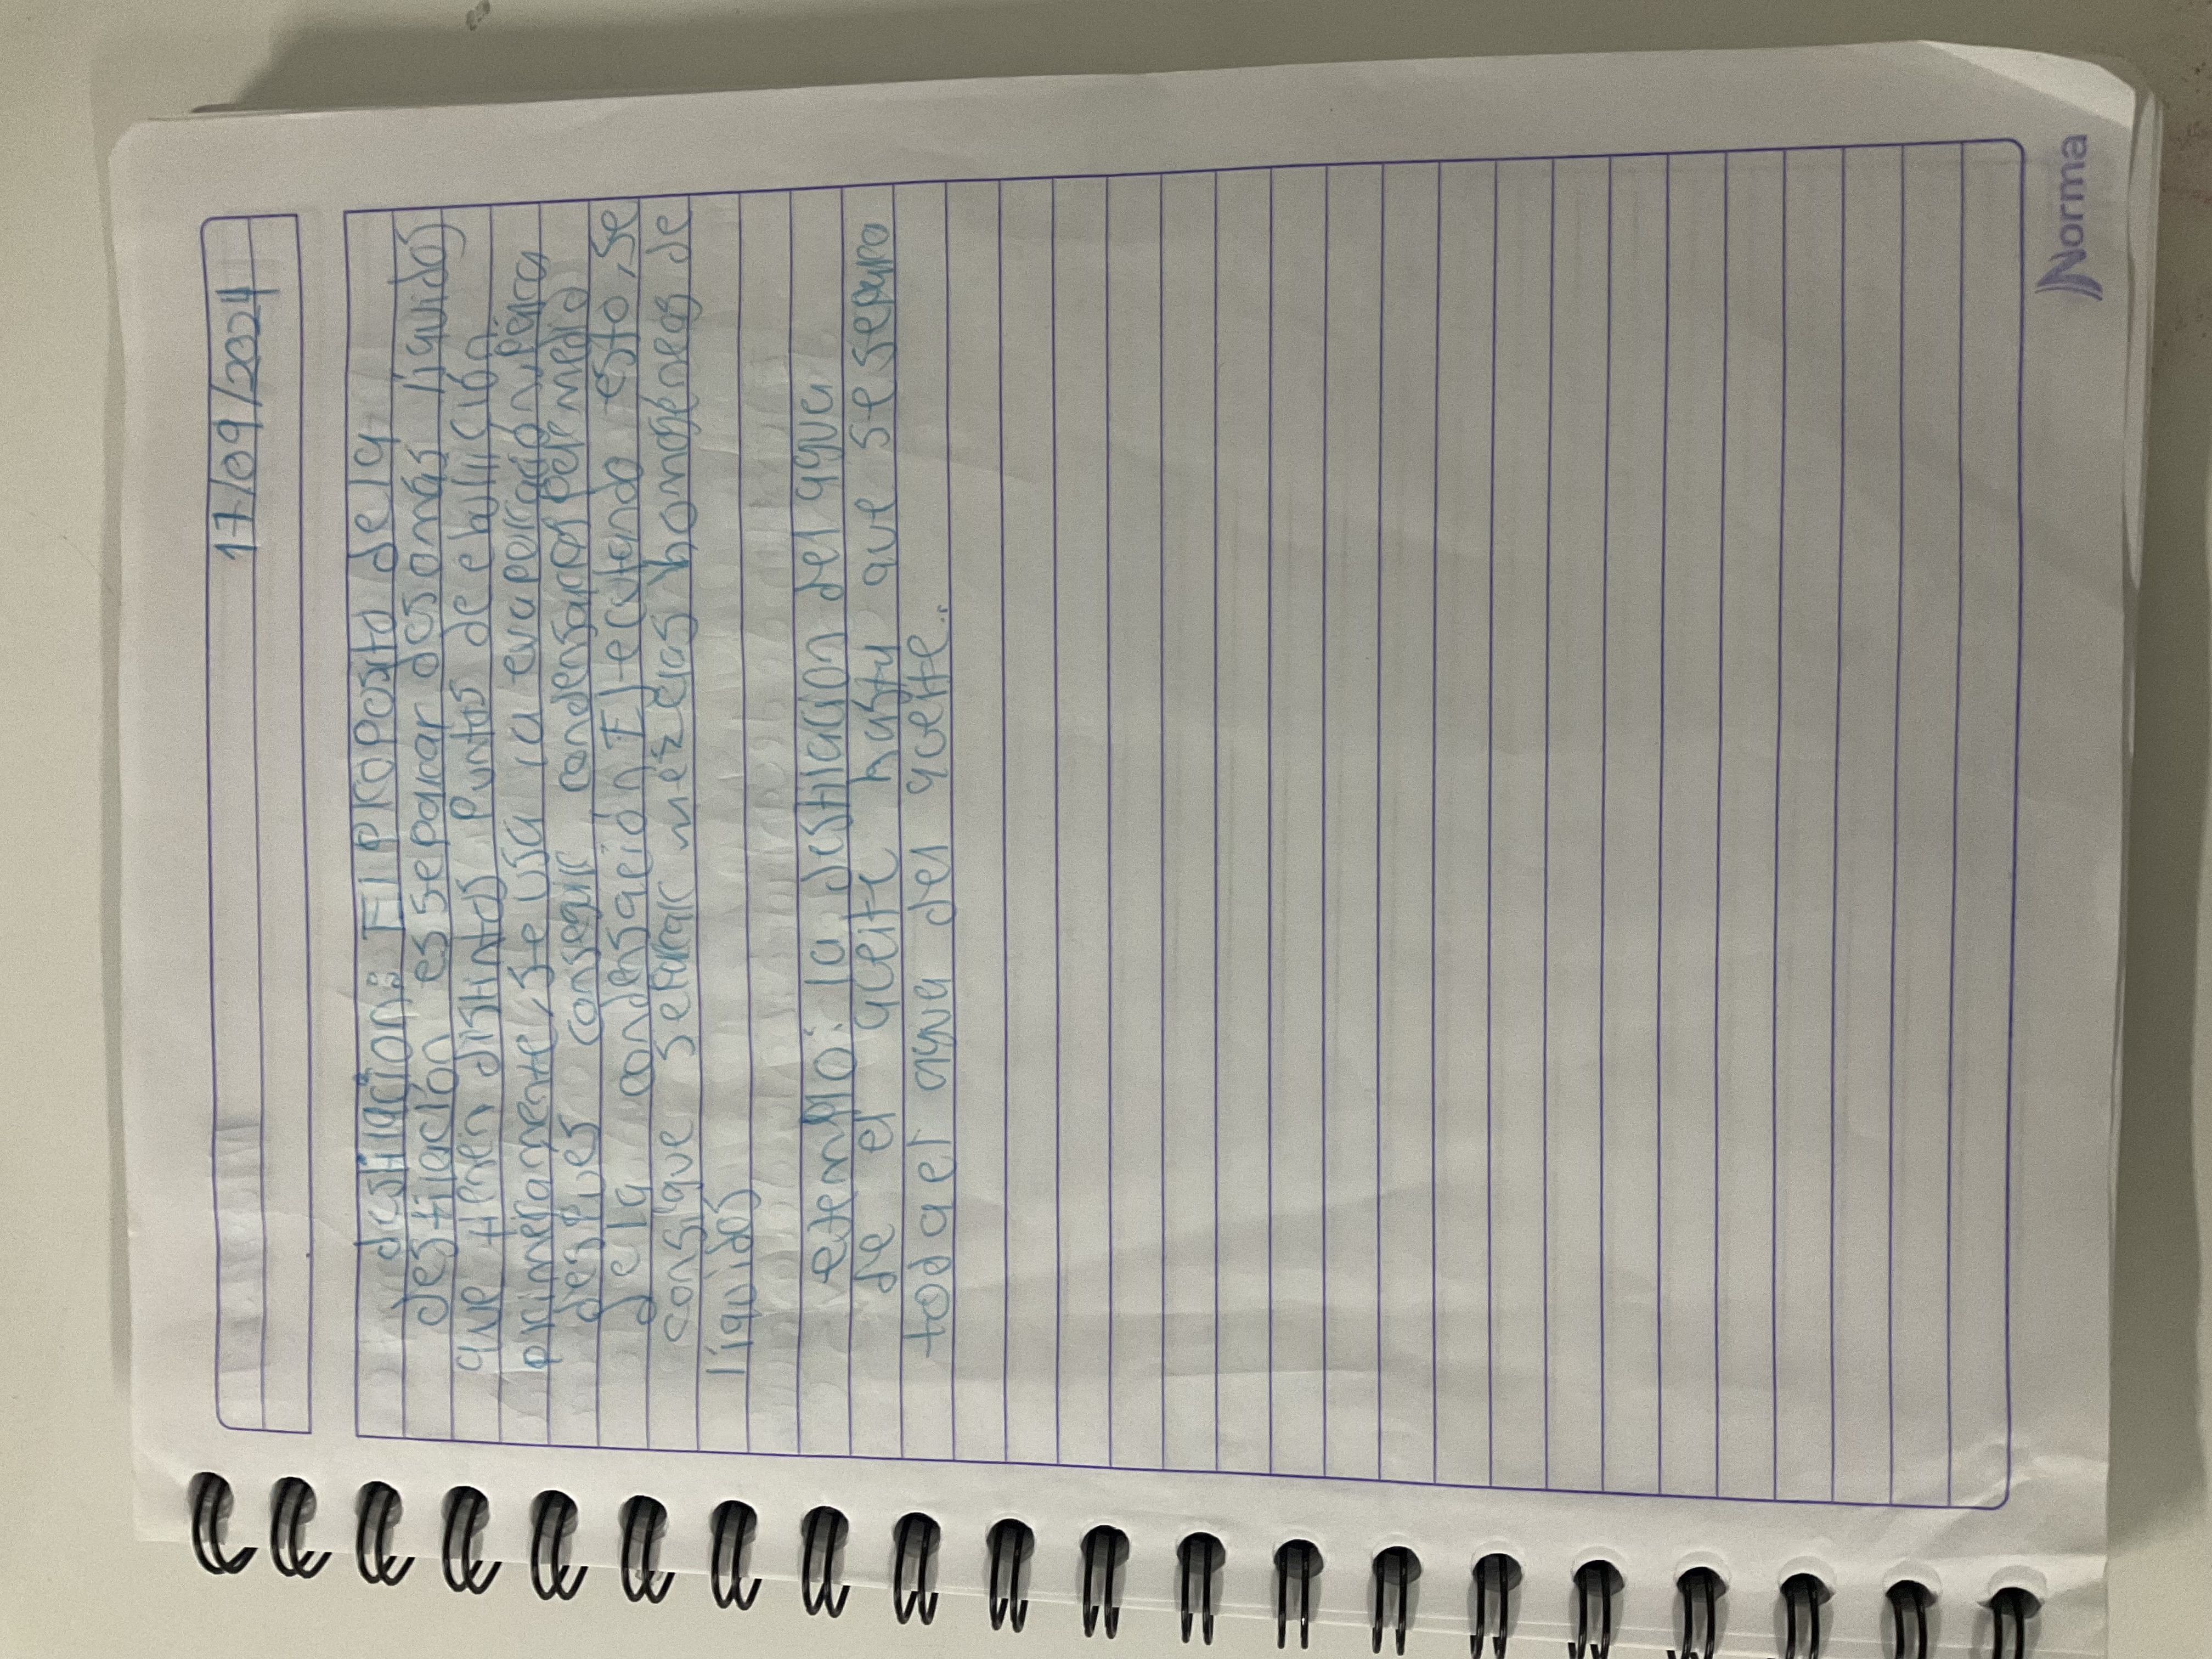 17/09/2024
destilación: El proposito de la
destilación es separar dos o más líquidos
que tienen distintos puntos de ebullición
primeramente, se usa la evaporación para
despues conseguir condensarlos por medio
de la condensación Ejecutando esto, se
consigue separar mézclas homogéneas de
líquidos
ejemplo: la destilacion del agua
de el aceite hasta que se separa
toda el agua del aceite..
Norma